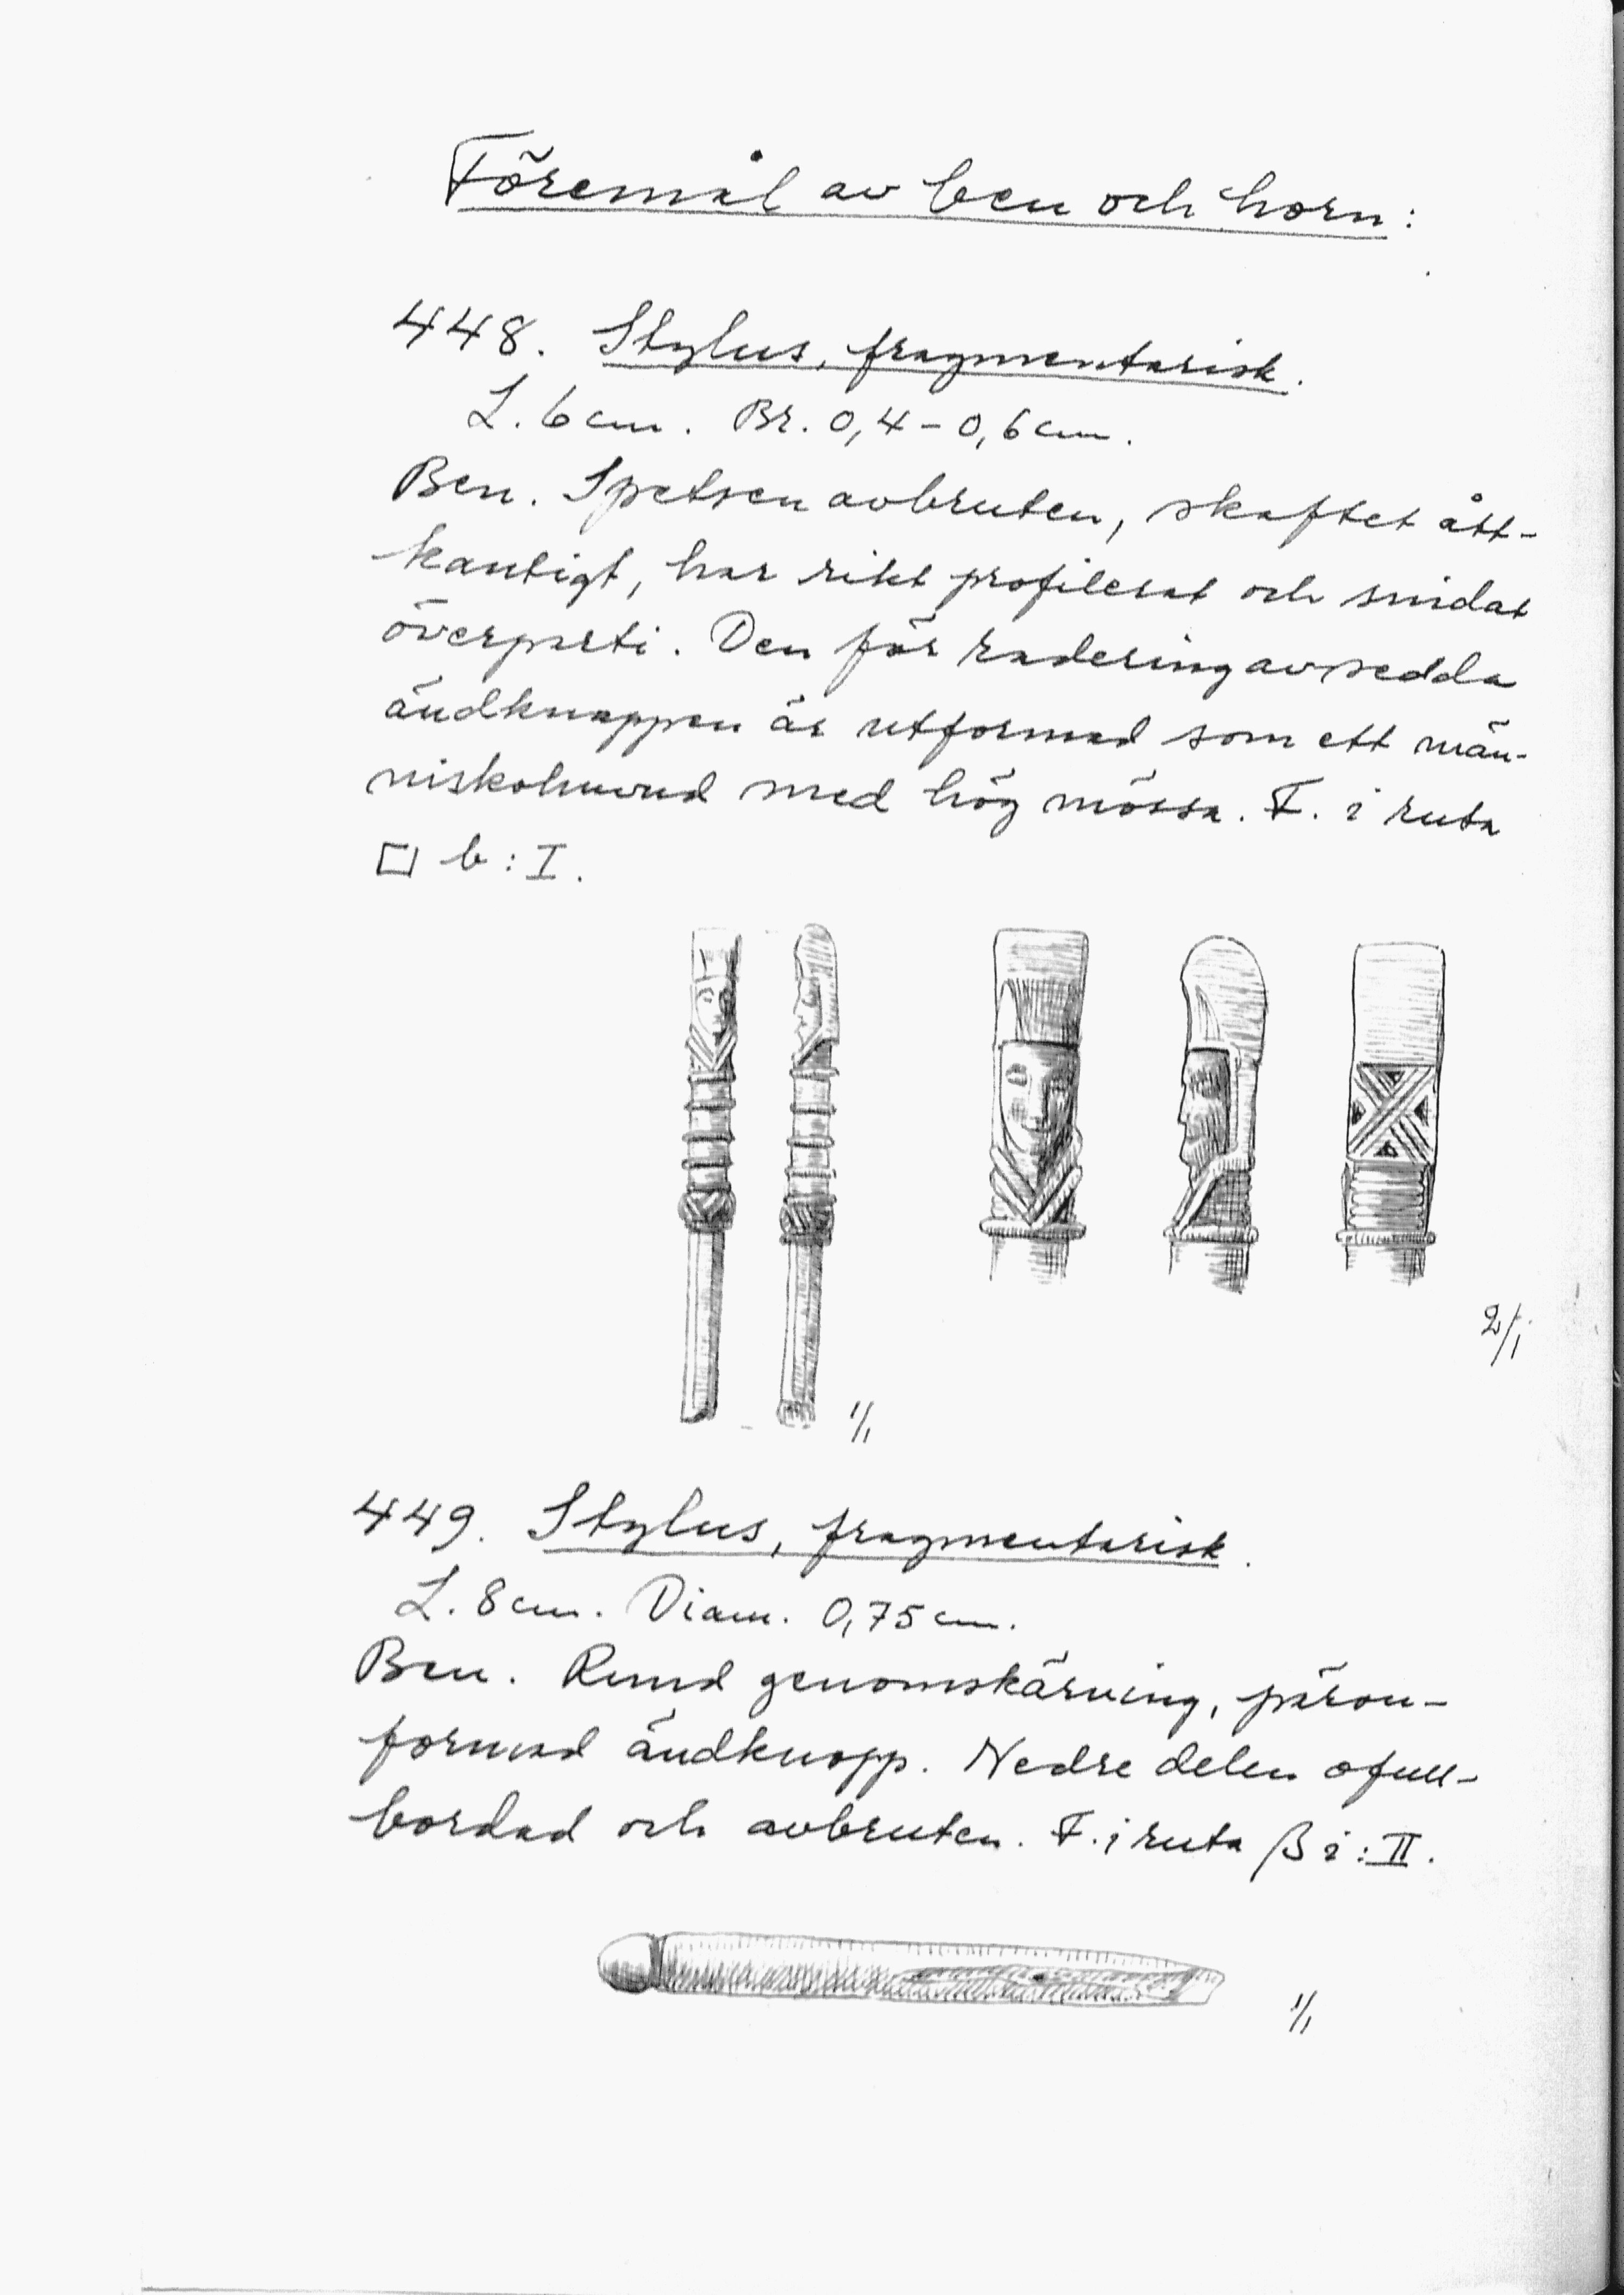 Föremål av ben och horn:
448. Stylus, fragmentarisk.
L. 6 cm. Br. 0,4 – 0,6 cm.
Ben. Spetsen avbruten, skaftet ått-
kantigt, har rikt profilerat och snidat
överparti. Den för radering avsedda
ändknoppen är utformad som ett män-
niskohuvud med hög mössa. F. i ruta
□ b : I.
2/1
1/1
449. Stylus, fragmentarisk.
L. 8 cm. Diam. 0,75 cm.
Ben. Rund genomskärning, päron-
formad ändknopp. Nedre delen ofull-
bordad och avbruten. F. i ruta β i : II.
1/1